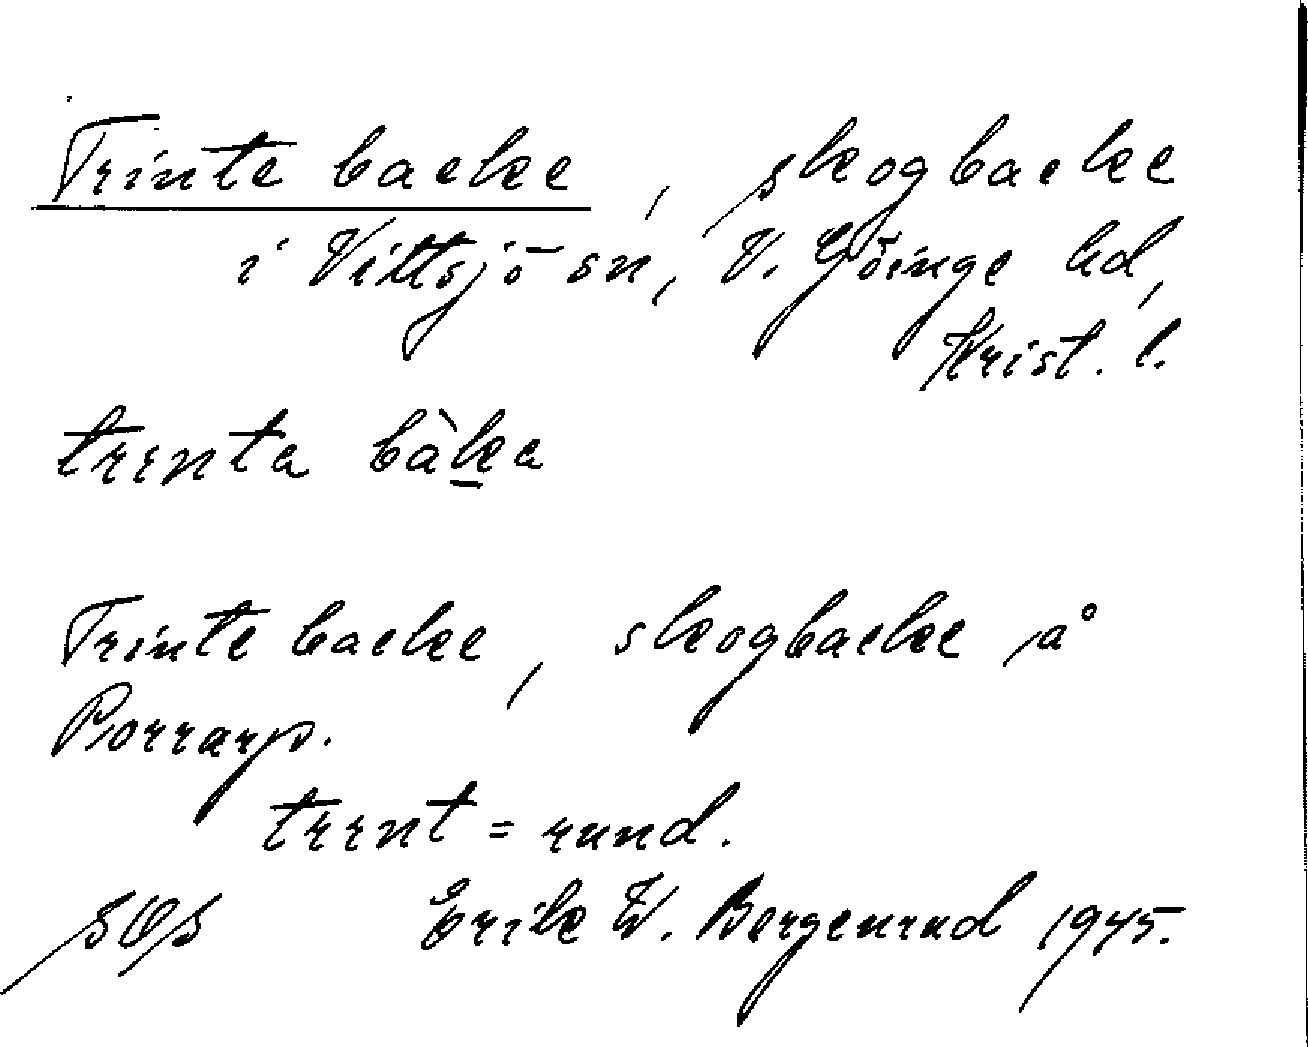 Trinte backe, skogbacke
i Vittsjö sn, V. Göinge hd,
Krist. l.
trɪnta bàka
Trinte backe, skogbacke på
Porrarp.
trɪnt = rund.
SOS Erik W. Bergenrud 1945.